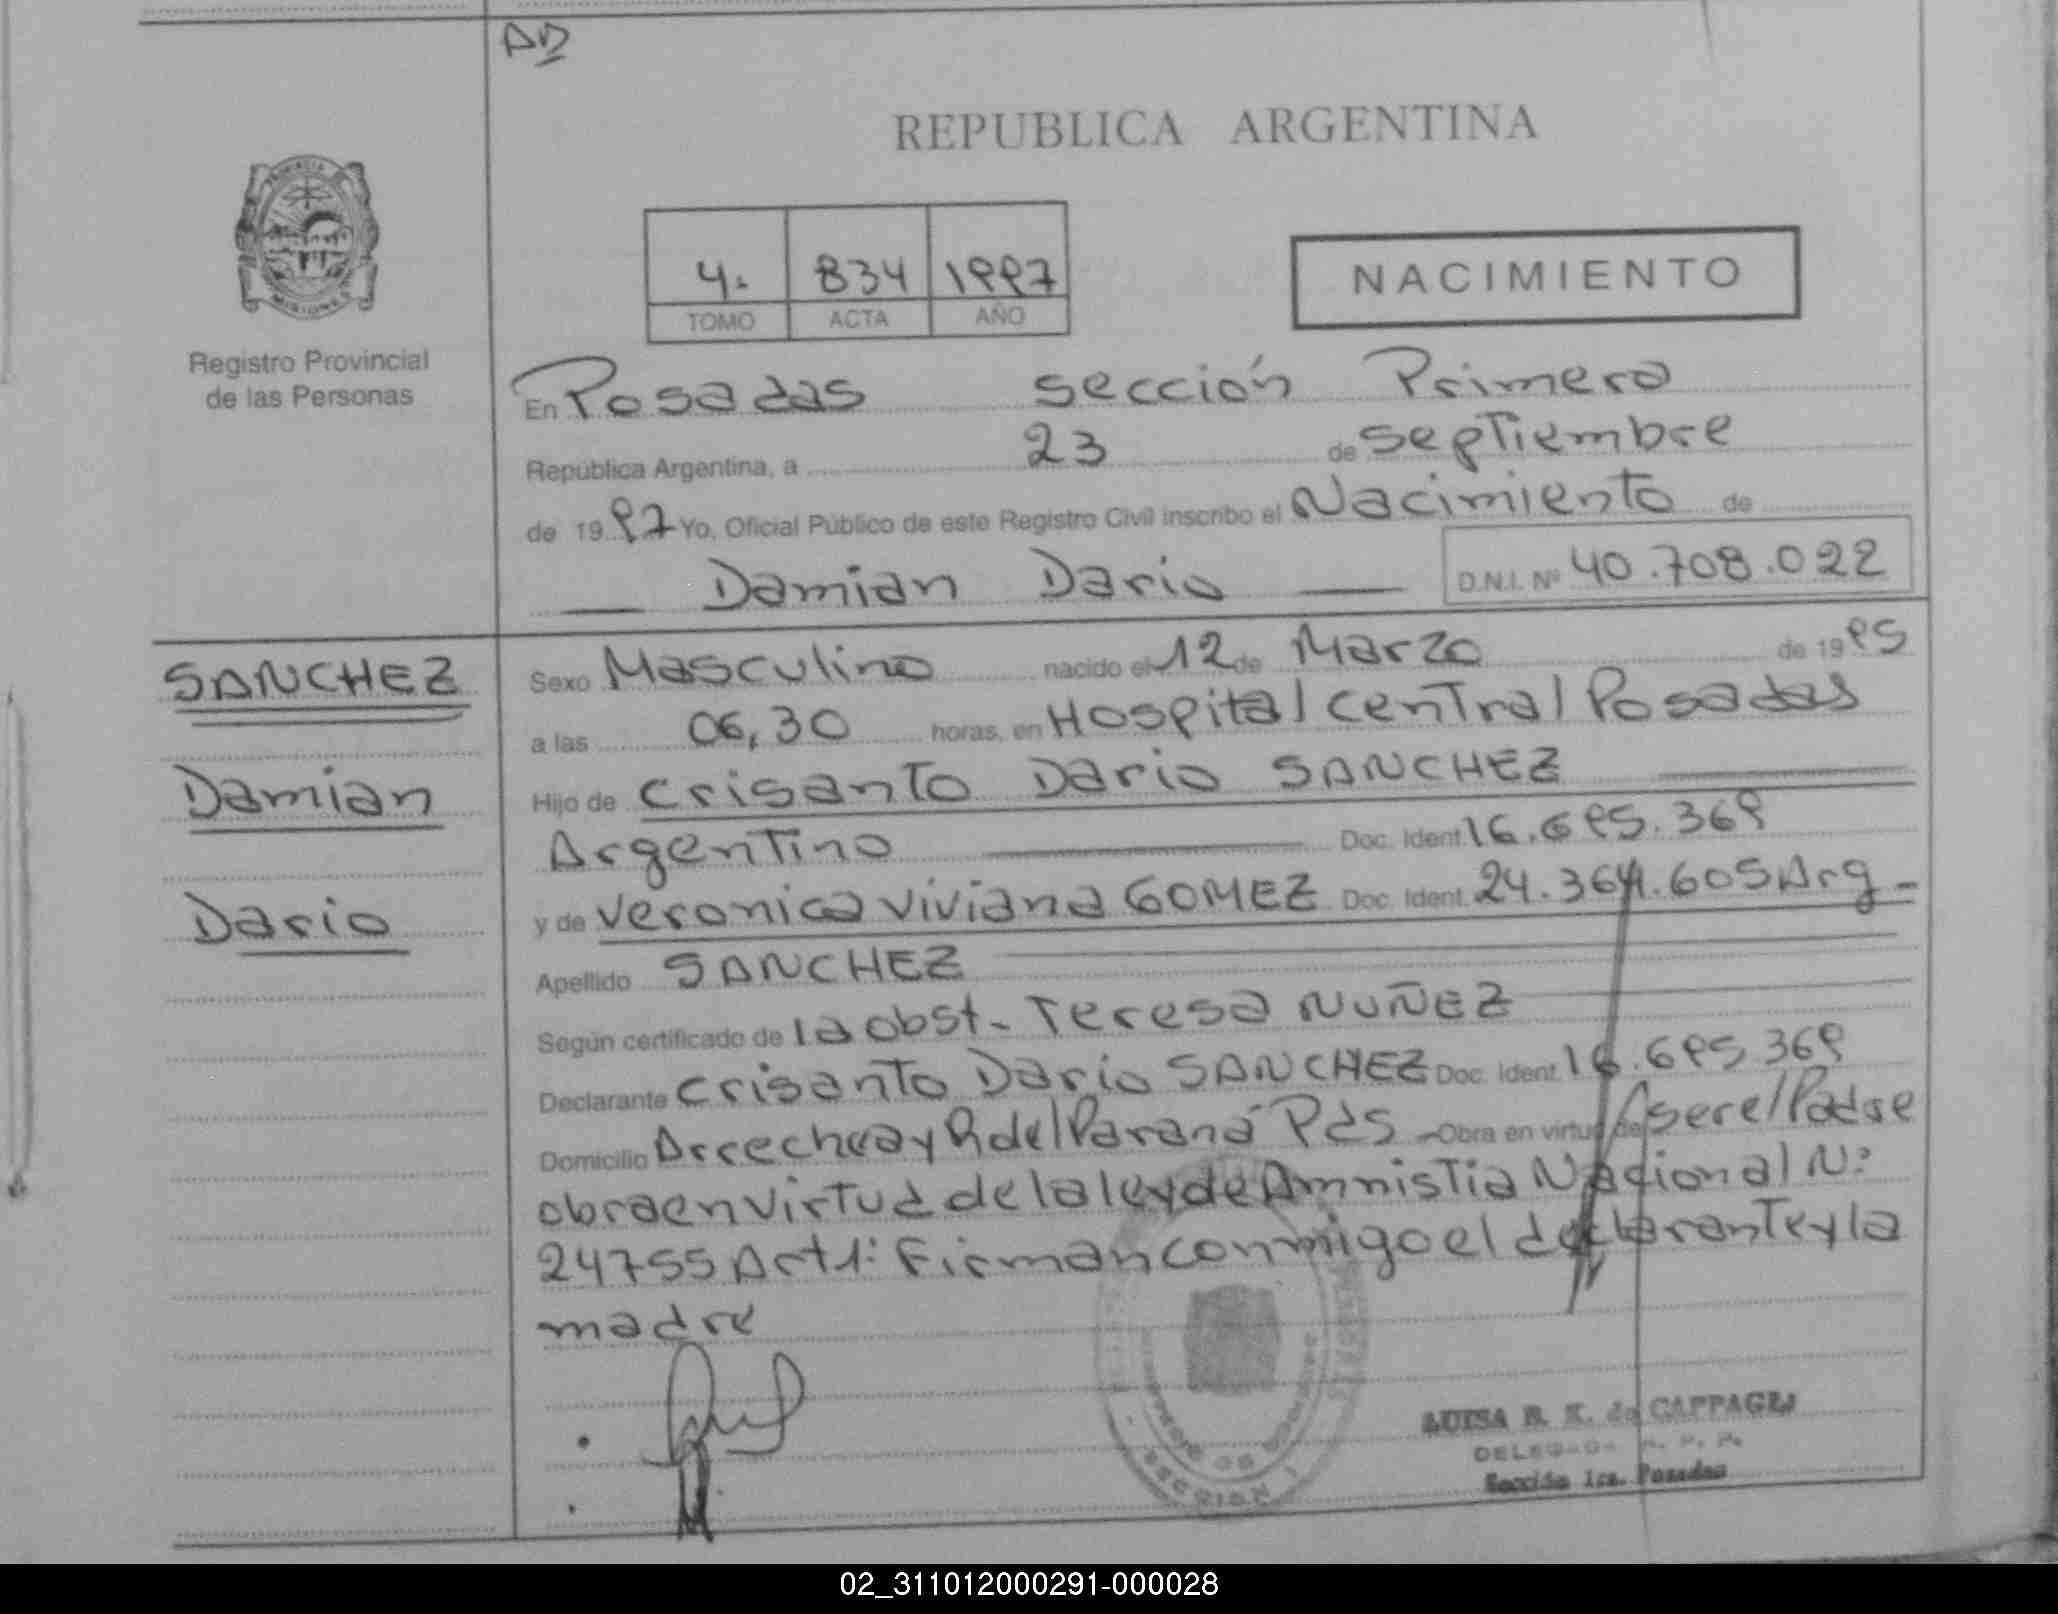 AD
REPUBLICA ARGENTINA
4. 834 1997
TOMO ACTA AÑO
NACIMIENTO
Registro Provincial
de las Personas
En Posadas sección Primera
República Argentina, a 23 de septiembre
de 1997 Yo, Oficial Público de este Registro Civil inscribo el Nacimiento de
Damian Dario D.N.I. Nº 40.708.022
SANCHEZ
Damian
Dario
Sexo Masculino nacido el 12 de Marzo de 1995
a las 06,30 horas, en Hospital central Posadas
Hijo de Crisanto Dario SANCHEZ
Argentino Doc. Ident. 16.695.369
y de Veronica Viviana GOMEZ Doc. Ident. 24.364.605 Arg-
Apellido SANCHEZ
Según certificado de la obst- Teresa NUÑEZ
Declarante Crisanto Dario SANCHEZ Doc. Ident. 16.695.369
Domicilio Arrechea y R del Paraná Pds - Obra en virtud de ser el Padre
obra en virtud de la ley de Amnistia Nacional N:
24755 Art 1: Firman conmigo el declarante y la
madre
LUISA B. K. de CAPPAGLI
DELEGADA R. P. P.
Sección 1ra. Posadas
02_311012000291-000028